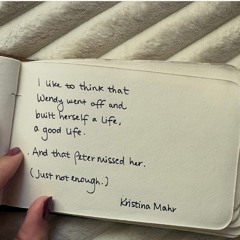 I like to think that
Wendy went off and
built herself a life,
a good life.
And that Peter missed her.
(Just not enough.)
Kristina Mahr